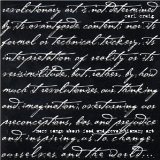 revolutionary art is not determined
carl craig
by its avantgarde content, nor its
formal or technical trickery, its
interpretation of reality or its
verisimilitude, but, rather, by how
much it revolutionises our thinking
and imagination; overturning our
preconceptions, bias and prejudice
more songs about food and revolutionary art
and inspiring us to change
ourselves and the world.